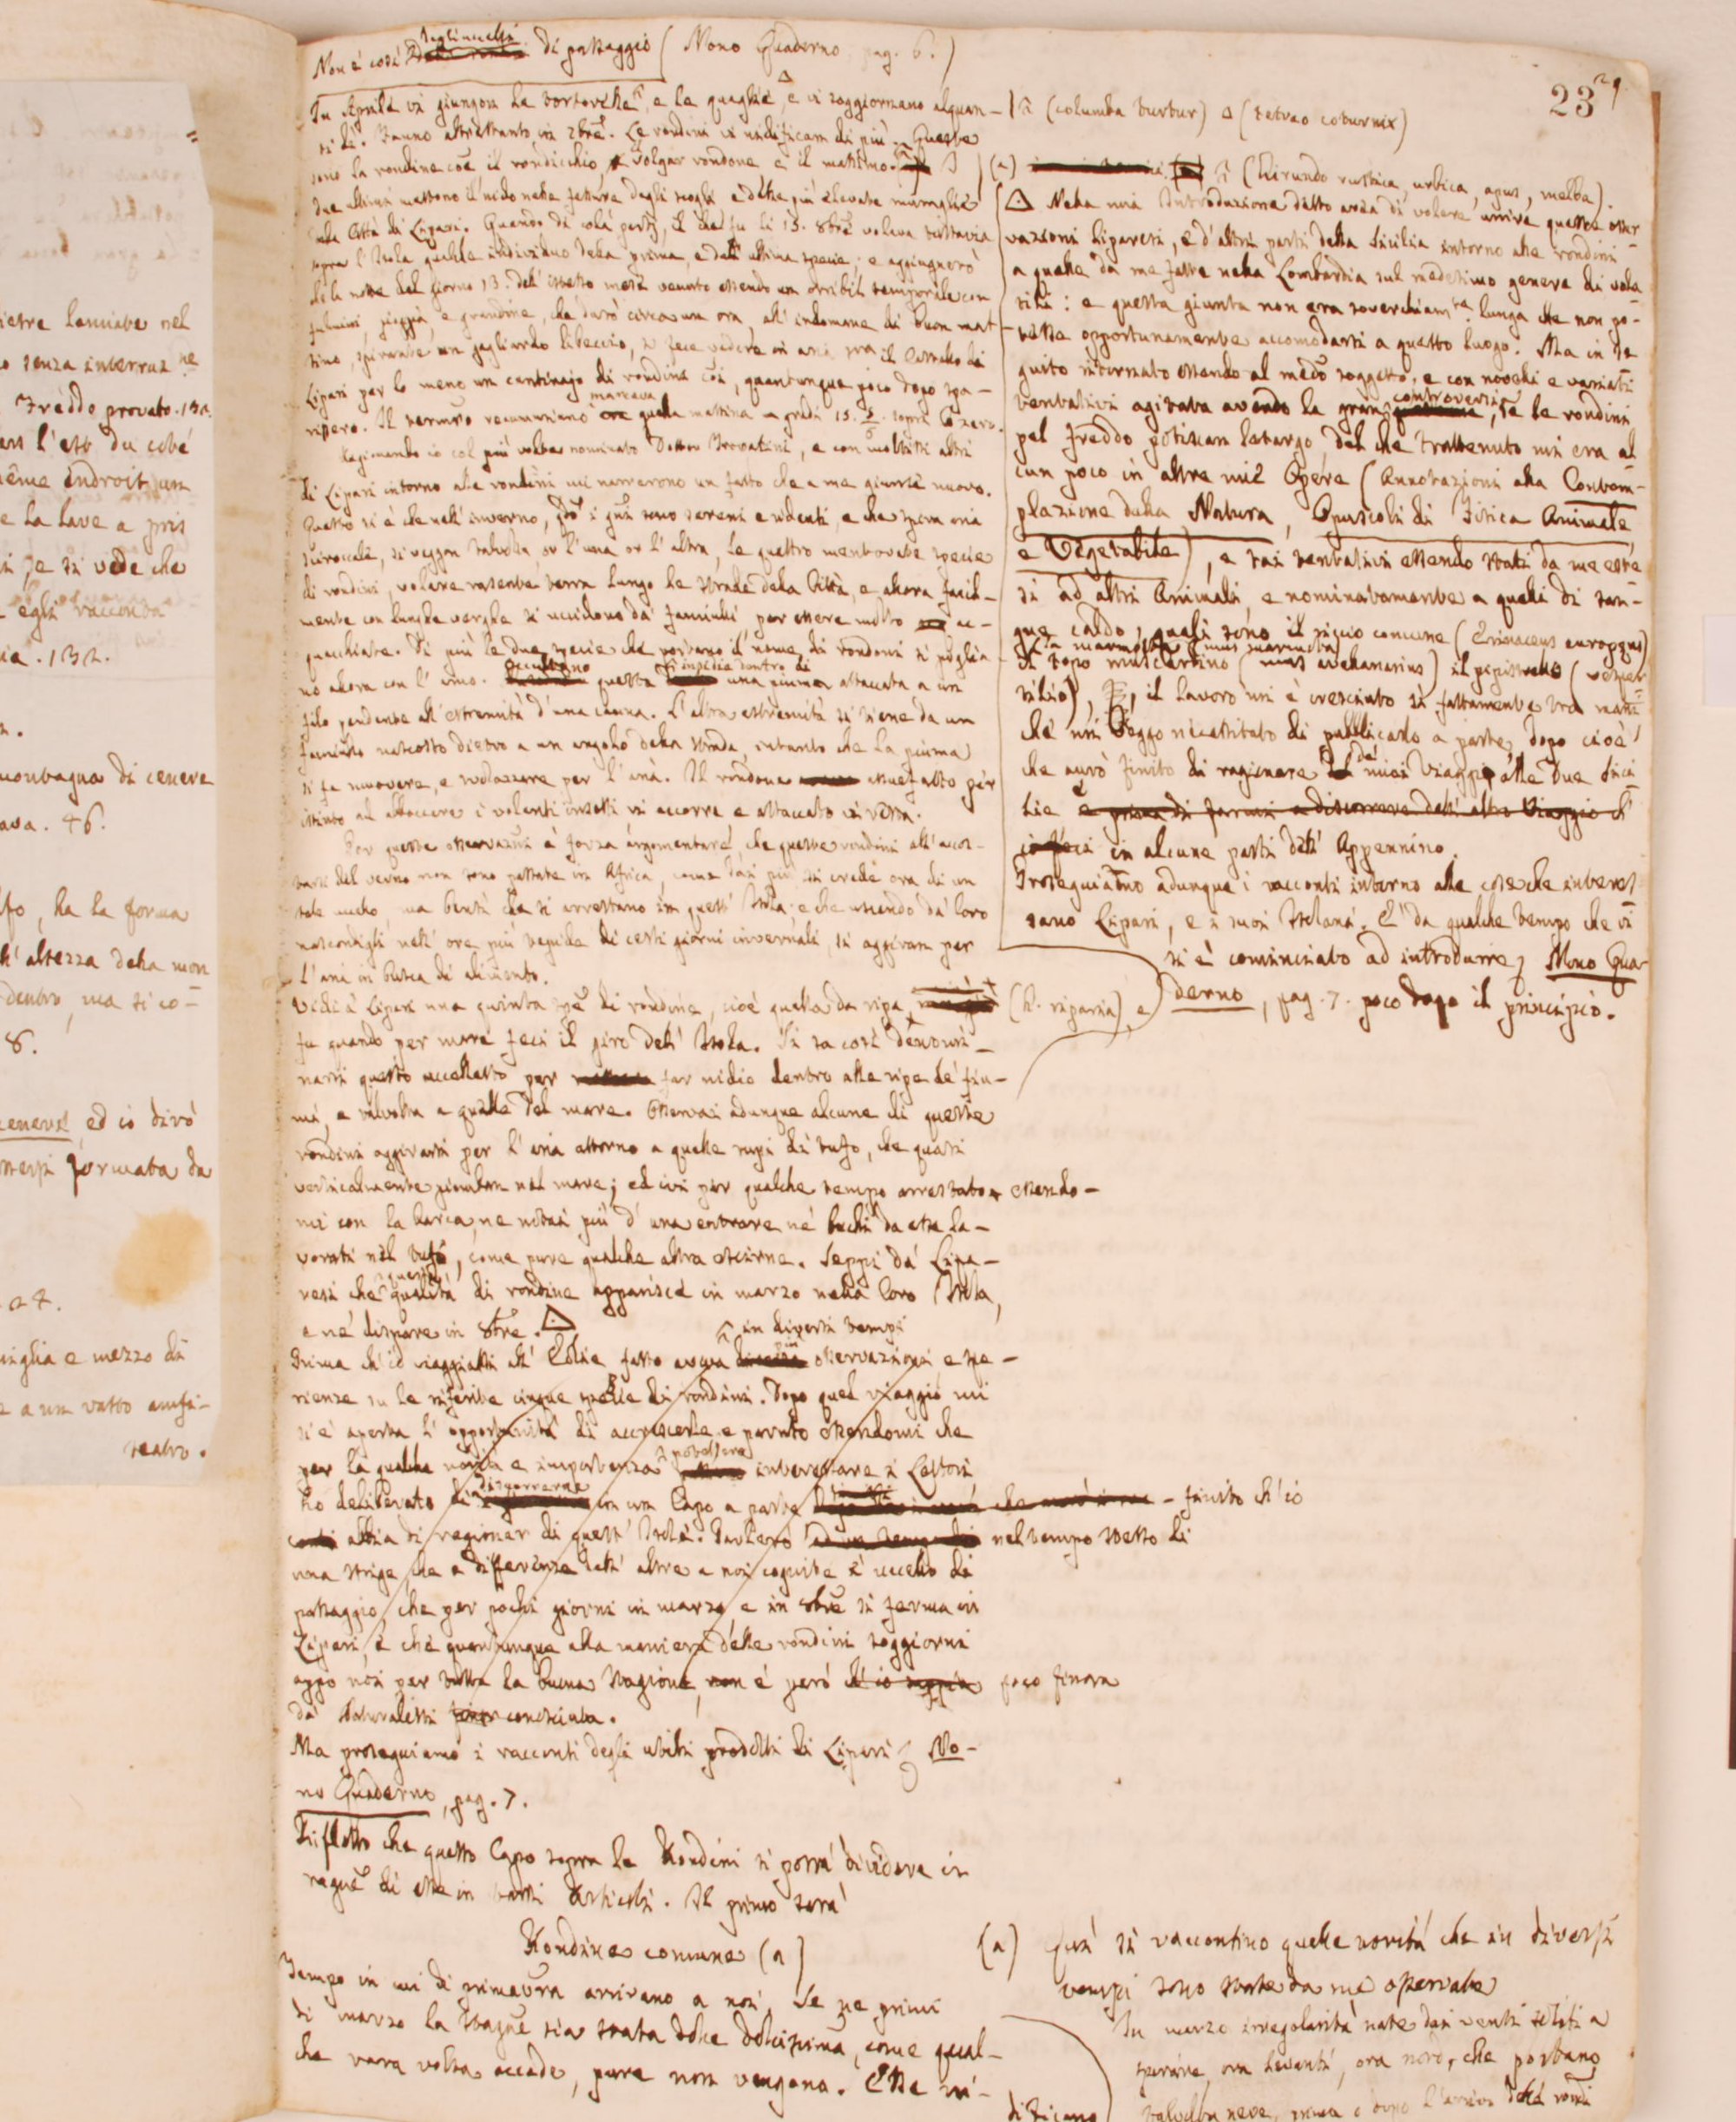 23
Non è così di passaggio ( Nono Quaderno pag. 6. )
In Aprile vi giungon le tortorelle, e le quaglie, e vi soggiornano alquan-
ti dì. Fanno altrettanto in 7bre. Le rondini vi nidificano di più. Queste
sono la rondine coe il rondicchio, volgar rondone e il massimo.
due ultimi mettono il nido nelle fessure degli scogli e delle più elevate muraglie
della Città di Lipari. Quando di colà partj, il che fu li 15. 8bre volava tuttavia
sopra l'Isola qualche individuo della prima, e dell' ultima specie; e aggiugnerò
che la notte del giorno 13. dell' istesso mese venuto essendo un orribil temporale con
fulmini, pioggia, e grandine, che durò circa un ora, all' indomane di buon mat-
tino, spirante un gagliardo libeccio, si fece vedere in aria sovra il Castello di
Lipari per lo meno un centinajo di rondini coi, quantunque poco dopo spa-
rissero. Il termro reaumuriano marcava quella mattina gradi 15. sopra lo zero.
Ragionando io col più volte nominato Dottore Trovatini, e con moltissi altri
di Lipari intorno alle rondini mi narrarono un fatto che a me giunse nuovo.
Questo si è che nell' inverno, sono sereni e ridenti, e che spira aria
sciroccale, si veggon talvolta or l'una or l'altra, le quattro mentovate specie
di rondini, volare rasente terra lungo le strade della Città, e allora facil-
mente con lunghe verghe si uccidono da' fanciulli per essere molto ac-
quacchiate. Di più le due specie che portano il nome di rondoni si piglia-
no allora con l'amo. Occultano questa insidia dentro di una piuma attaccata a un
filo pendente all' estremità d'una canna. L'altra estremità si tiene da un
fanciullo nascosto dietro a un angolo della strada, intanto che la piuma
si fa muovere, e svolazzare per l'aria. Il rondone assuefatto per
istinto ad abboccare i volanti insetti vi accorre e attaccato vi resta.
Per queste osservazni è forza argomentare che queste rondini all' accos-
tarsi del verno non sono passate in Africa, come dai più si crede ora di un
tale uccello, ma bensì che si arrestano in quest' Isola; e che uscendo da' loro
nascondigli nell' ore più tepide di certi giorni invernali, si aggirano per
l'aria in busca di alimento.
Vidi a Lipari una quinta spe di rondine, cioè quella da ripa, (h. riparia) e
fu quando per mare feci il giro dell' Isola. Si sa così denomi-
narsi questo uccelletto per far nidio dentro alle ripe de' fiu-
mi, e talvolta a quelle del mare. Osservai adunque alcune di queste
rondini aggirarsi per l'aria attorno a quelle rupi di tufo, che quasi
verticalmente piomban nel mare; ed ivi per qualche tempo arrestato essendo-
mi con la barca, ne notai più d'una entrare ne' buchi da essa la-
vorati nel tufo, come pure qualche altra uscirne. Seppi da' Lipa-
resi che questa qualità di rondine apparisce in marzo nella loro Isola,
e ne dispare in 8bre.
in diversi tempi
Prima ch'io viaggiassi all' Eolie fatto aveva più osservazioni e spe-
rienze su le riferite cinque specie di rondini. Dopo quel viaggio mi
si è aperta l'opportunità di accrescerle e paruto essendomi che
per la qualche novità e importanza potessero interessare i Lettori
ho deliberato di discorrerne in un Capo a parte - finito ch'io
abbia di ragionar di quest' Isole. Parlerò nel tempo stesso di
una strige, che a differenza dell' altre a noi cognite è uccello di
passaggio, che per pochi giorni in marzo, e in 8bre si ferma in
Lipari, e che quantunque alla maniera delle rondini soggiorni
appo noi per tutta la buona stagione, non è però ch'io sappia poco finora
da' Naturalisti conosciuta.
Ma proseguiamo i racconti degli utili prodotti di Lipari No-
no Quaderno, pag. 7.
Rifletto che questo Capo sopra le Rondini si potrà dividere in
ragne di esse in tanti Articoli. Il primo sarà
Rondine comune (a)
Tempo in cui di primavera arrivano a noi. Se ne' primi
di marzo la stagne sia stata dolce dolcissima, come qual-
che rara volta accade, pure non vengono. Esse ni-
dificano
(columba turtur) (tetrao coturnix)
(a) (hirundo rustica, urbica, apus, melba).
Nella mia Introduzione detto avea di volere unire queste osser-
vazioni liparesi, e d'altri parti della Sicilia intorno alle rondini
a quelle da me fatte nella Lombardia sul medesimo genere di vola-
tili: e questa giunta non era soverchiamte lunga che non po-
tesse opportunamente accomodarsi a questo luogo. Ma in se-
guito ritornato essendo al medo soggetto, e con novelli e variati
tentativi agitata avendo la gran controversia, se le rondini
pel freddo patiscan letargo, del che trattenuto mi era al-
cun poco in altre mie Opere (Annotazioni alla Contem-
plazione della Natura, Opuscoli di Fisica Animale
e Vegetabile), e tai tentativi essendo stati da me este-
si ad altri Animali, e nominatamente a quelli di san-
gue caldo, quali sono il riccio comune (Erinaceus europæus)
la marmotta (mus marmota)
il topo muscardino (mus avellanarius) il pipistrello (vesper-
tilio), il lavoro mi è cresciuto sì fattamente tra mani
che mi veggo necessitato di pubblicarlo a parte, dopo cioè
che avrò finito di ragionare de' miei Viaggi alle due Sici-
lie e prima di farmi a discorrere dell' altro Viaggio ch'
io feci in alcune parti dell' Appennino.
Proseguiamo adunque i racconti intorno alle cose che interes-
sano Lipari, e i suoi Isolani. E' da qualche tempo che vi
si è cominciato ad introdurre, Nono Qua-
derno, pag. 7. poco dopo il principio.
(a) Quì si raccontino quelle novità che in diversi
tempi sono state da me osservate
In marzo irregolarità nate dai venti soliti a
spirare, ora levanti, ora nord, che portano
talvolta neve, prima e dopo l'arrivo delle rondi
ietre lanciate nel
o senza interruz ne
Freddo provato. 132.
même endroit
e la lave a pris
e si vede che
egli racconta
132.
montagna di cenere
ava. 46.
fo, ha la forma
l'altezza della mon
dentro, ma si co-
8.
ed io dirò
formata da
27.
miglia e mezzo di
a un vasto anfi-
teatro.